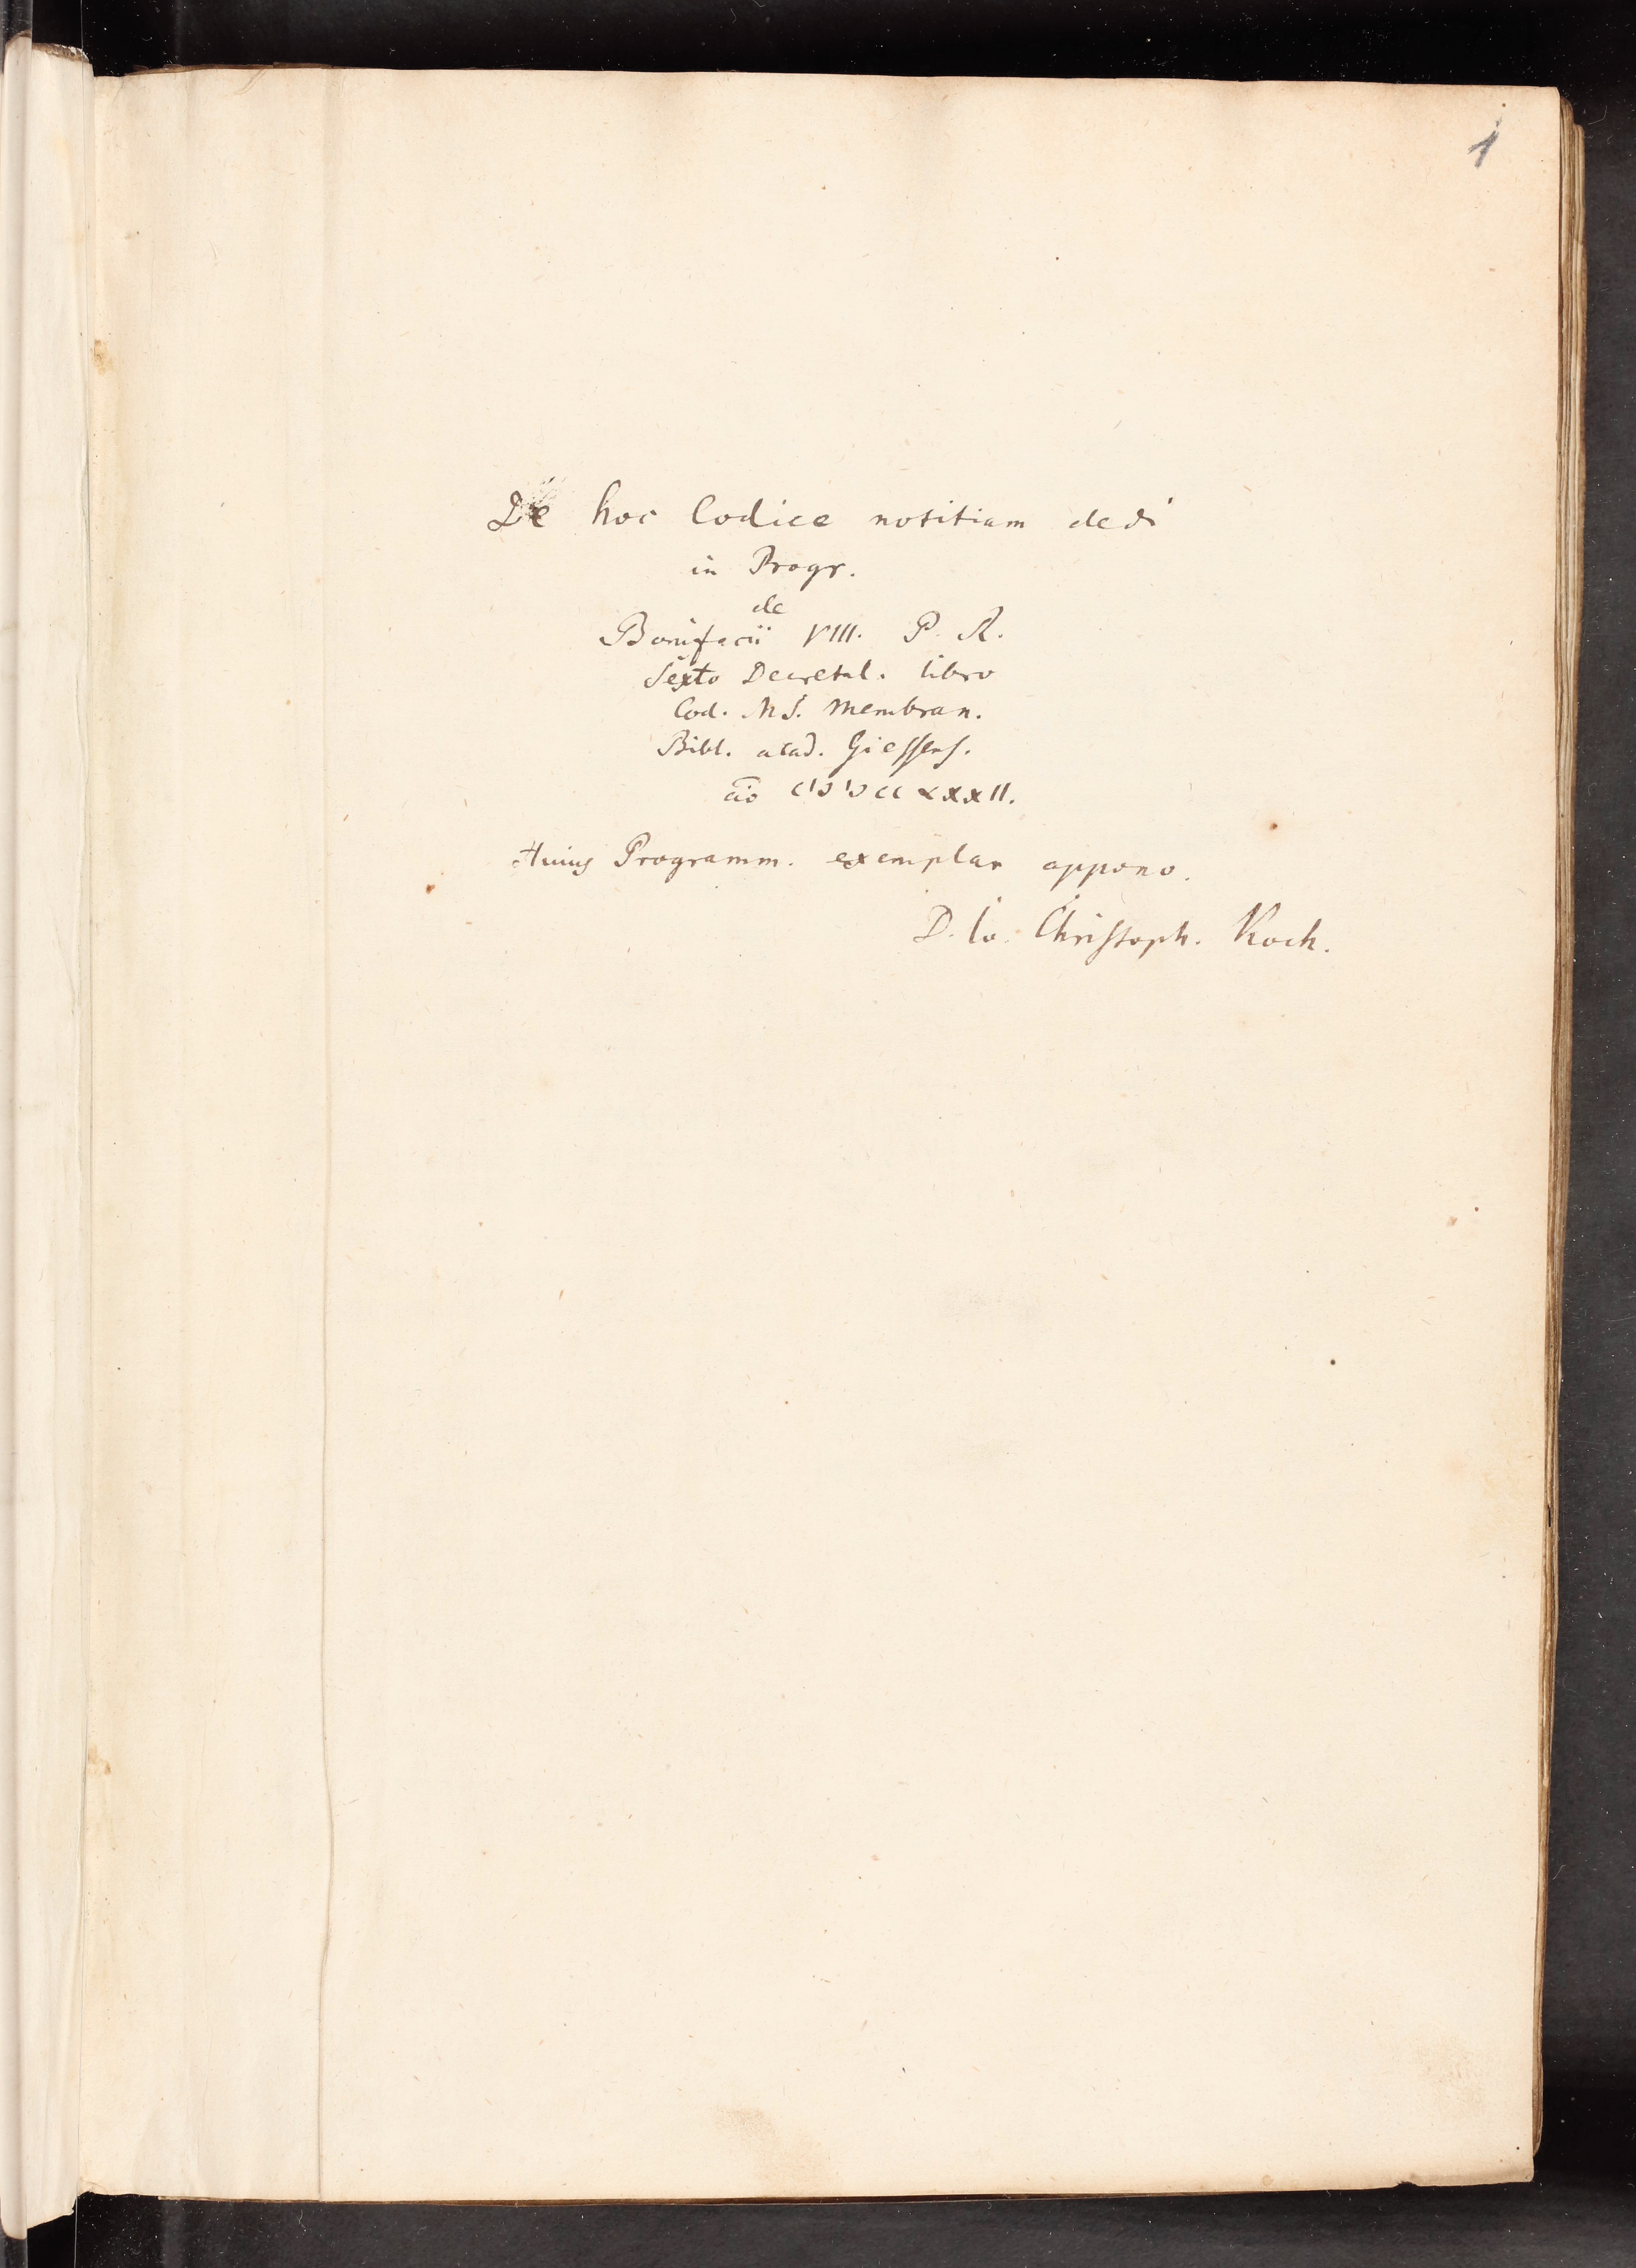 1
De hoc Codice notitiam dedi
in Progr.
de
Bonifacii VIII. P. R.
Sexto Decretal. libro
Cod. MS. Membran.
Bibl. acad. Giessens.
aō CIƆIƆCCLXXII.
Huius Programm. exemplar appono.
D. Io. Christoph. Koch.